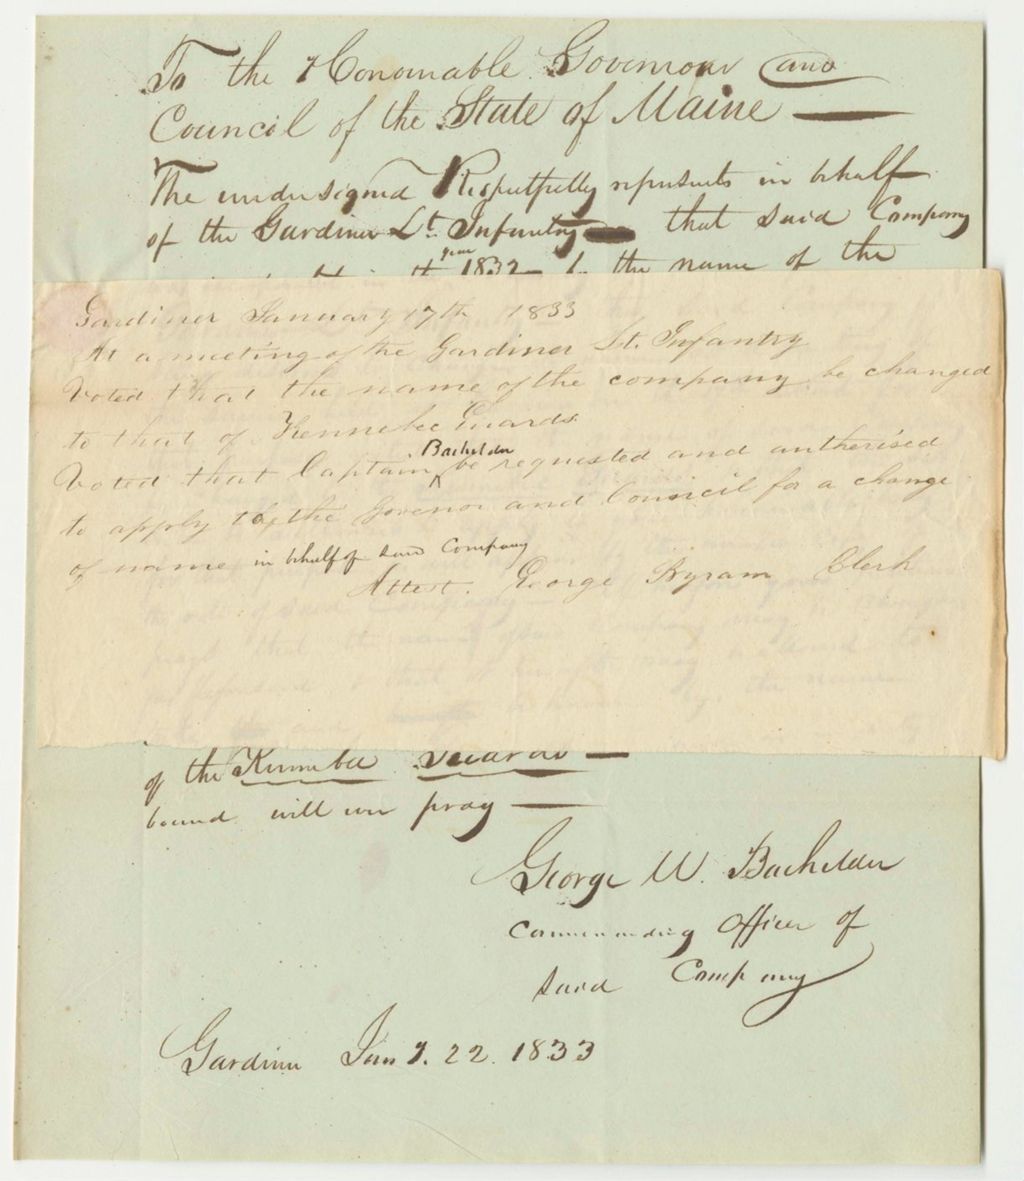 To the Honourable Governour and
Council of the State of Maine
The undersigned Respectfully represents in behalf
of the Gardiner Lt. Infantry that said Company
year
1832 the name of the
Gardiner January 17th 1833
At a meeting of the Gardiner Lt. Infantry
Voted that the name of the company be changed
to that of Kennebec Guards
Voted that Captain Bachelder be requested and autherised
to apply to the Govenor and Council for a change
of name in behalf of said Company
Attest. George Byram Clerk
of the Kennebec Guards
bound will ever pray
George W. Bachelder
Commanding Officer of
said Company
Gardiner Jany. 22. 1833